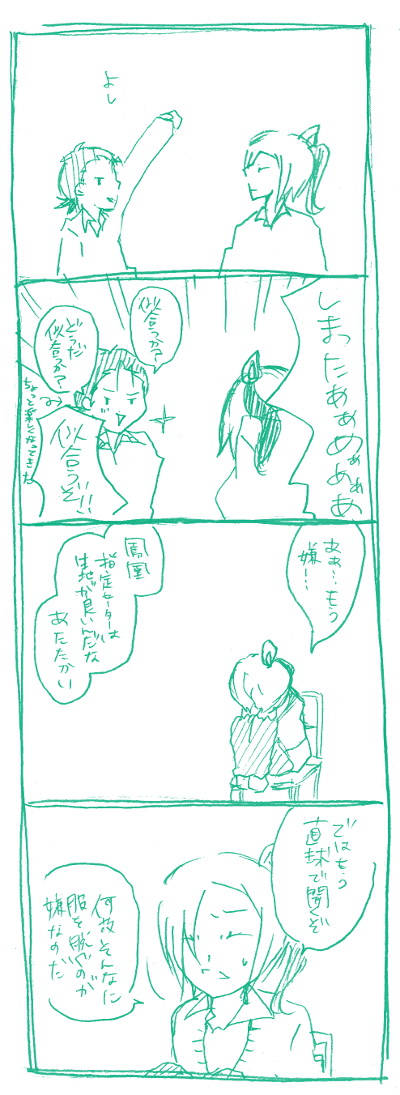 よし
しまったあぁぁぁぁあ
似合うか?
どうだ
似合うか?
似合うぞ!!
ちょっと楽しくなってきた
ああ…もう
嫌…
鳳凰
指定セーターは
生地が良いんだな
あたたかい
ではもう
直球で聞くぞ
何故そんなに
服を脱ぐのが
嫌なのだ